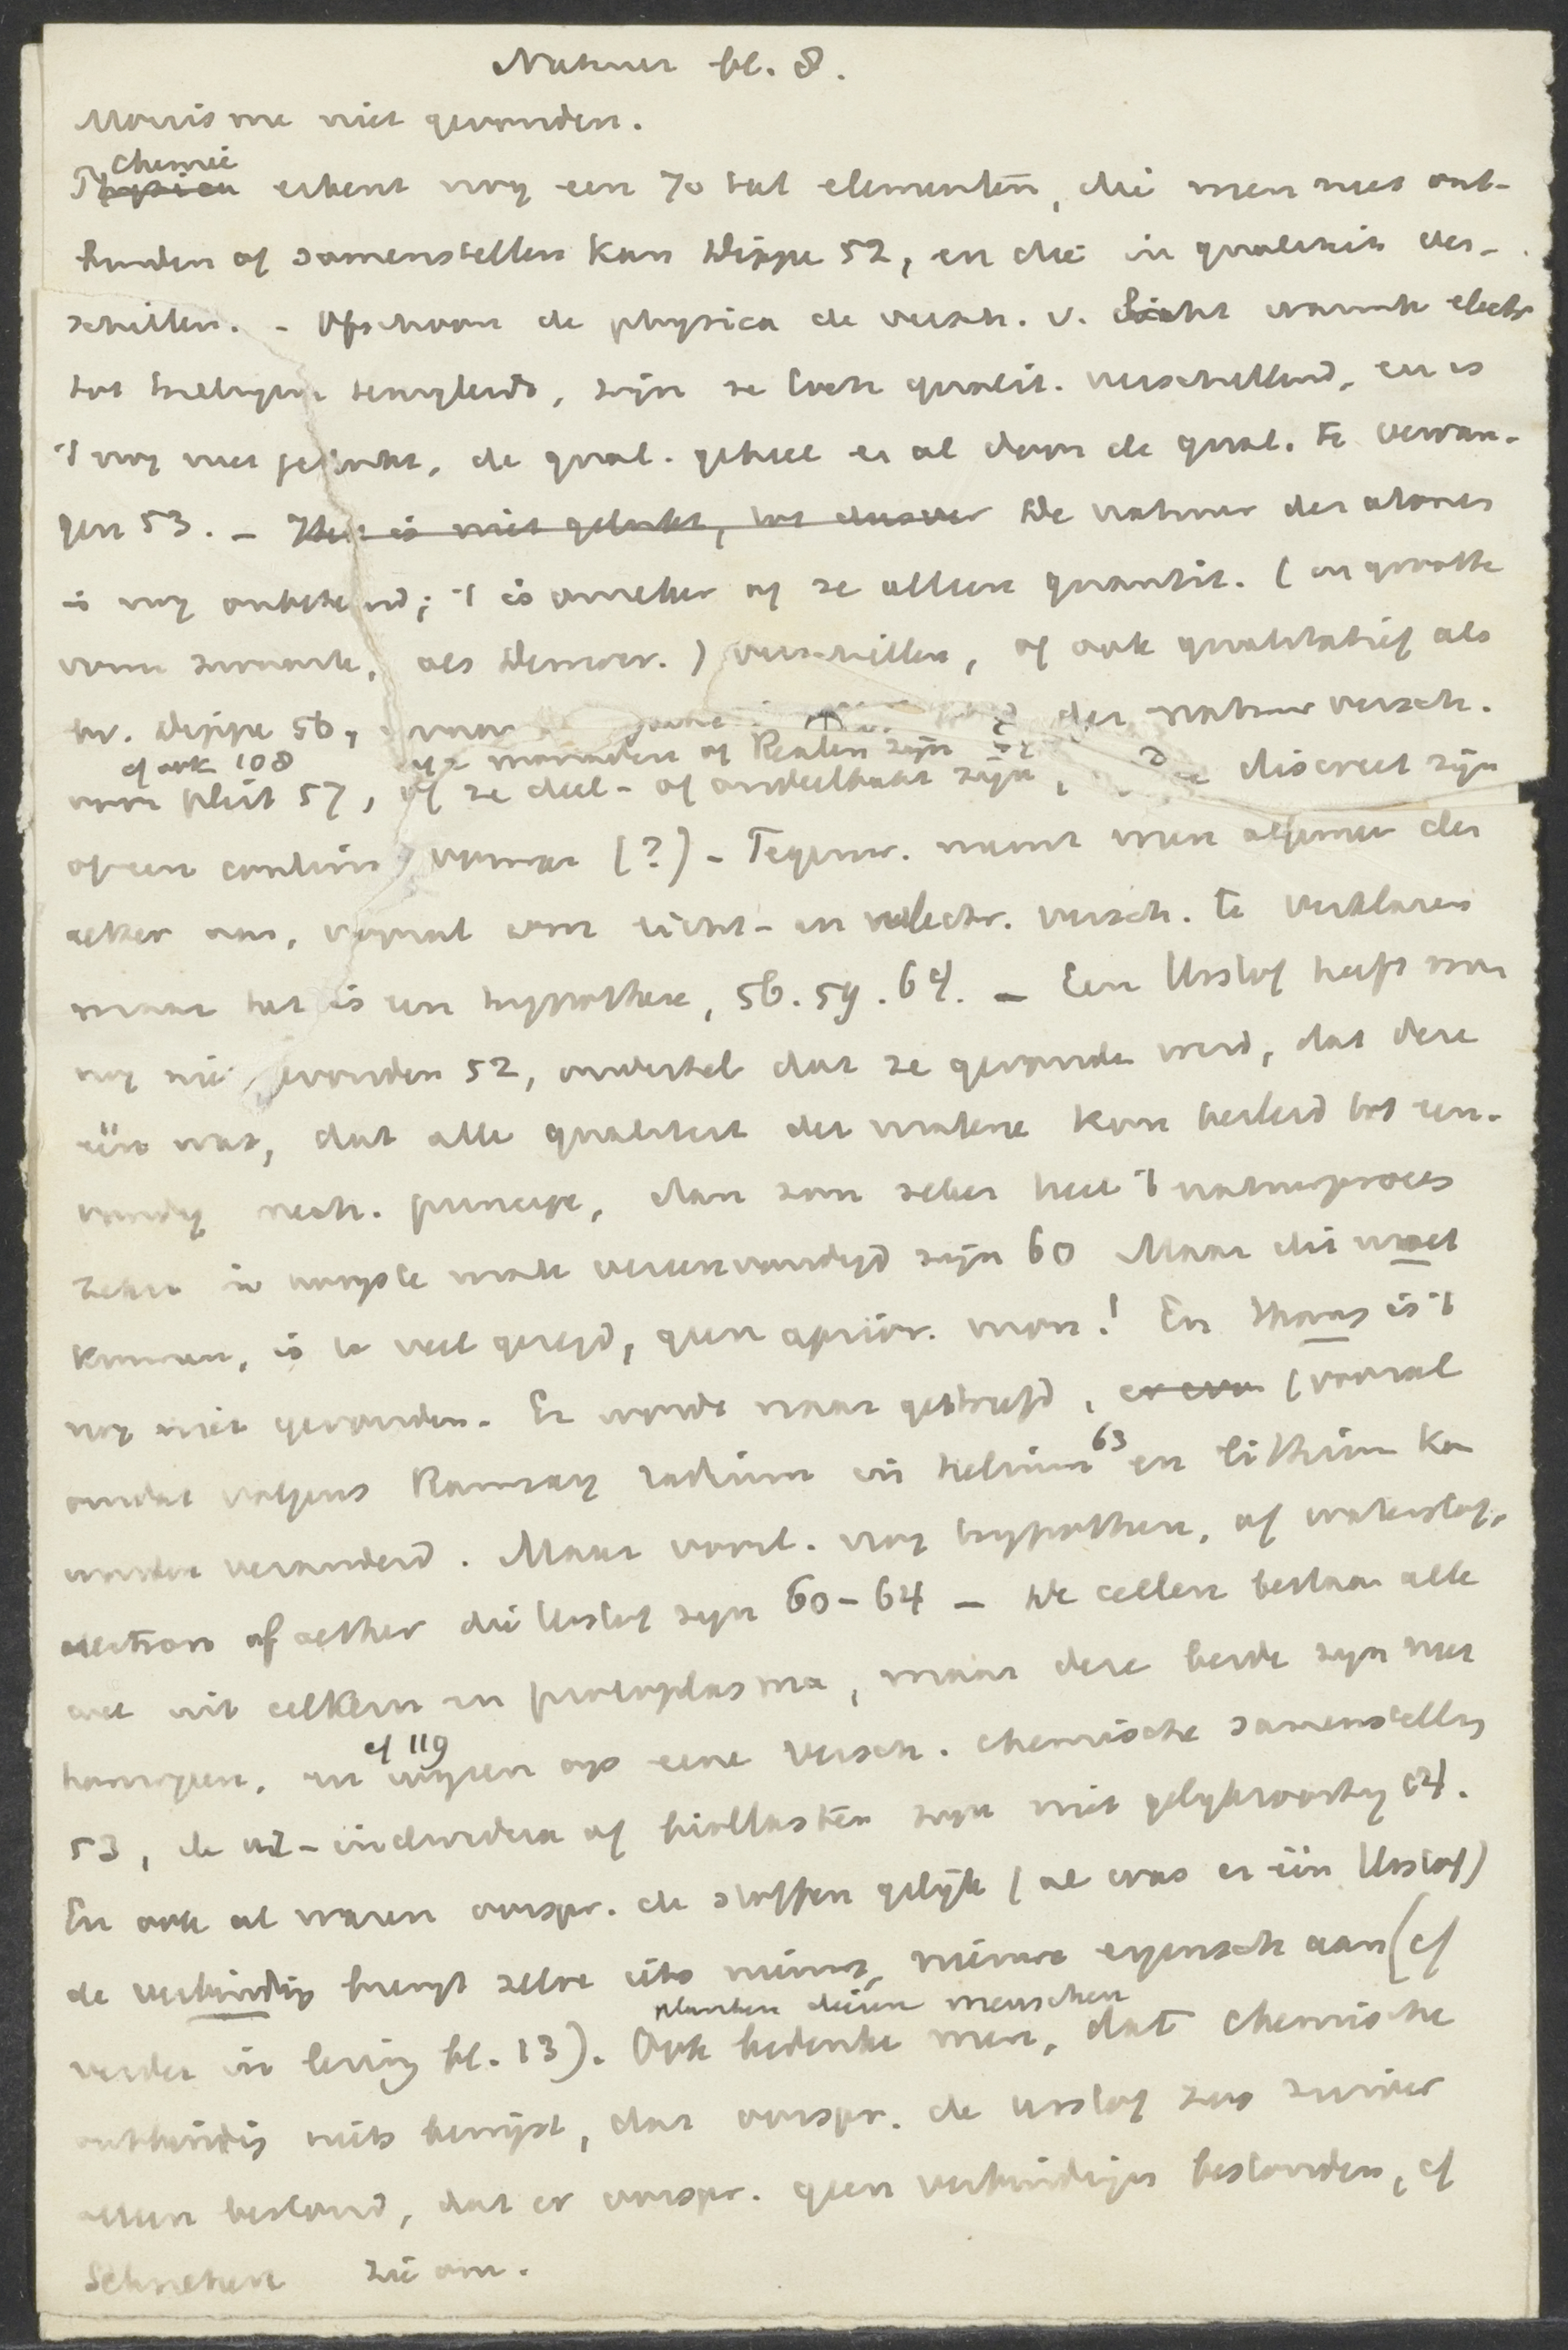 Natuur bl. 8.
Monisme niet gevonden.
Chemie
erkent nog een 70 tal elementen, die men niet ont-
binden of samenstellen kan Dippe 52, en die in qualiteit ver-
schillen. - Ofschoon de physica de versch. v. licht warmte electr
tot bewegen teruggeleid, zijn ze toch qualit. verschillend, en is
't nog niet gelukt, de qual. geheel en al door de quant. te vervan-
gen 53. - Het is niet gelukt, tot dusver De natuur der atomen
is nog onbekend; 't is onzeker of ze alleen quantit. (in grootte
vorm zwaarte, als Democr.) verschillen, of ook qualitatief als
bv. Dippe 56, der natuur versch.
cf ook 108 monaden of Realen zijn
57, of ze deel- of ondeelbaar zijn, discreet zijn
of een continu vormen (?) - Tegenw. neemt men algemeen den
aether aan, vooral om licht- en electr. versch. te verklaren
maar het is een hypothese, 56. 59. 64. - Een Urstof heeft men
nog niet gevonden 52, ondersteld dat ze gevonden werd, dat deze
één was, dat alle qualiteit der materie kon herleid tot een-
voudig mech. principe, dan zou zeker heel 't natuurproces
zeker in hoogste mate vereenvoudigd zijn 60 Maar dit moet
kunnen, is te veel gezegd, geen aprior. mon.! En thans is 't
nog niet gevonden. Er wordt naar gestreefd, (vooral
omdat volgens Ramsay radium in helium 63 en lithium kan
worden veranderd. Maar voorl. nog hypothesen, of waterstof,
electron of aether die Urstof zijn 60-64 - De cellen bestaan alle
wel uit celkern en protoplasma, maar deze beide zijn niet
homogeen, en wijzen op eene versch. chemische samenstelling cf 119
53, de individuen of bioblasten zijn niet gelijksoortig 64.
En ook al waren oorspr. de stoffen gelijk (al was er één Urstof)
de verbinding brengt zelve iets nieuws, nieuwe eigensch aan (cf
verder in leven bl. 13). Ook bedenke men, dat chemische
planten dieren menschen
ontbinding niets bewijst, dat oorspr. de urstof zoo zuiver
alleen bestond, dat er oorspr. geen verbindingen bestonden, cf
Schnehen zie om.